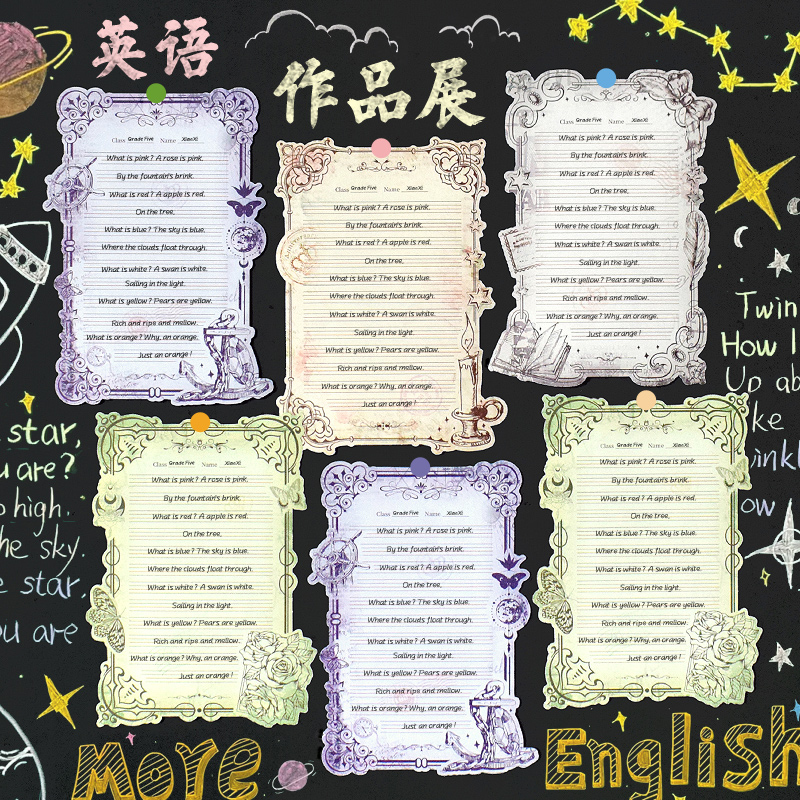 英语
作品展
Class Grade Five Name XiaoXi
What is pink? A rose is pink.
By the fountain's brink.
What is red? A apple is red.
On the tree,
What is blue? The sky is blue.
Where the clouds float through.
What is white? A swan is white.
Sailing in the light.
What is yellow? Pears are yellow.
Rich and ripe and mellow.
What is orange? Why, an orange.
Just an orange!
Class Grade Five Name XiaoXi
What is pink? A rose is pink.
By the fountain's brink.
What is red? A apple is red.
On the tree,
What is blue? The sky is blue.
Where the clouds float through.
What is white? A swan is white.
Sailing in the light.
What is yellow? Pears are yellow.
Rich and ripe and mellow.
What is orange? Why, an orange.
Just an orange!
Class Grade Five Name XiaoXi
What is pink? A rose is pink.
By the fountain's brink.
What is red? A apple is red.
On the tree,
What is blue? The sky is blue.
What is white? A swan is white.
Sailing in the light.
What is yellow? Pears are yellow.
Rich and ripe and mellow.
What is orange? Why, an orange.
Just an orange!
Twin
How I
Up ab
ke
winkl
ow
star,
u are?
high.
he sky.
e star,
ou are
Class Grade Five Name XiaoXi
What is pink? A rose is pink.
By the fountain's brink.
What is red? A apple is red.
On the tree,
What is blue? The sky is blue.
Where the clouds float through.
What is white? A swan is white.
Sailing in the light.
What is yellow? Pears are yellow.
Rich and ripe and mellow.
What is orange? Why, an orange.
Just an orange!
Class Grade Five Name XiaoXi
What is pink? A rose is pink.
By the fountain's brink.
What is red? A apple is red.
On the tree,
What is blue? The sky is blue.
Where the clouds float through.
What is white? A swan is white.
Sailing in the light.
What is yellow? Pears are yellow.
Rich and ripe and mellow.
What is orange? Why, an orange.
Just an orange!
Class Grade Five Name XiaoXi
What is pink? A rose is pink.
By the fountain's brink.
What is red? A apple is red.
On the tree,
What is blue? The sky is blue.
Where the clouds float through.
What is white? A swan is white.
Sailing in the light.
What is yellow? Pears are yellow.
Rich and ripe and mellow.
What is orange? Why, an orange.
Just an orange!
More English